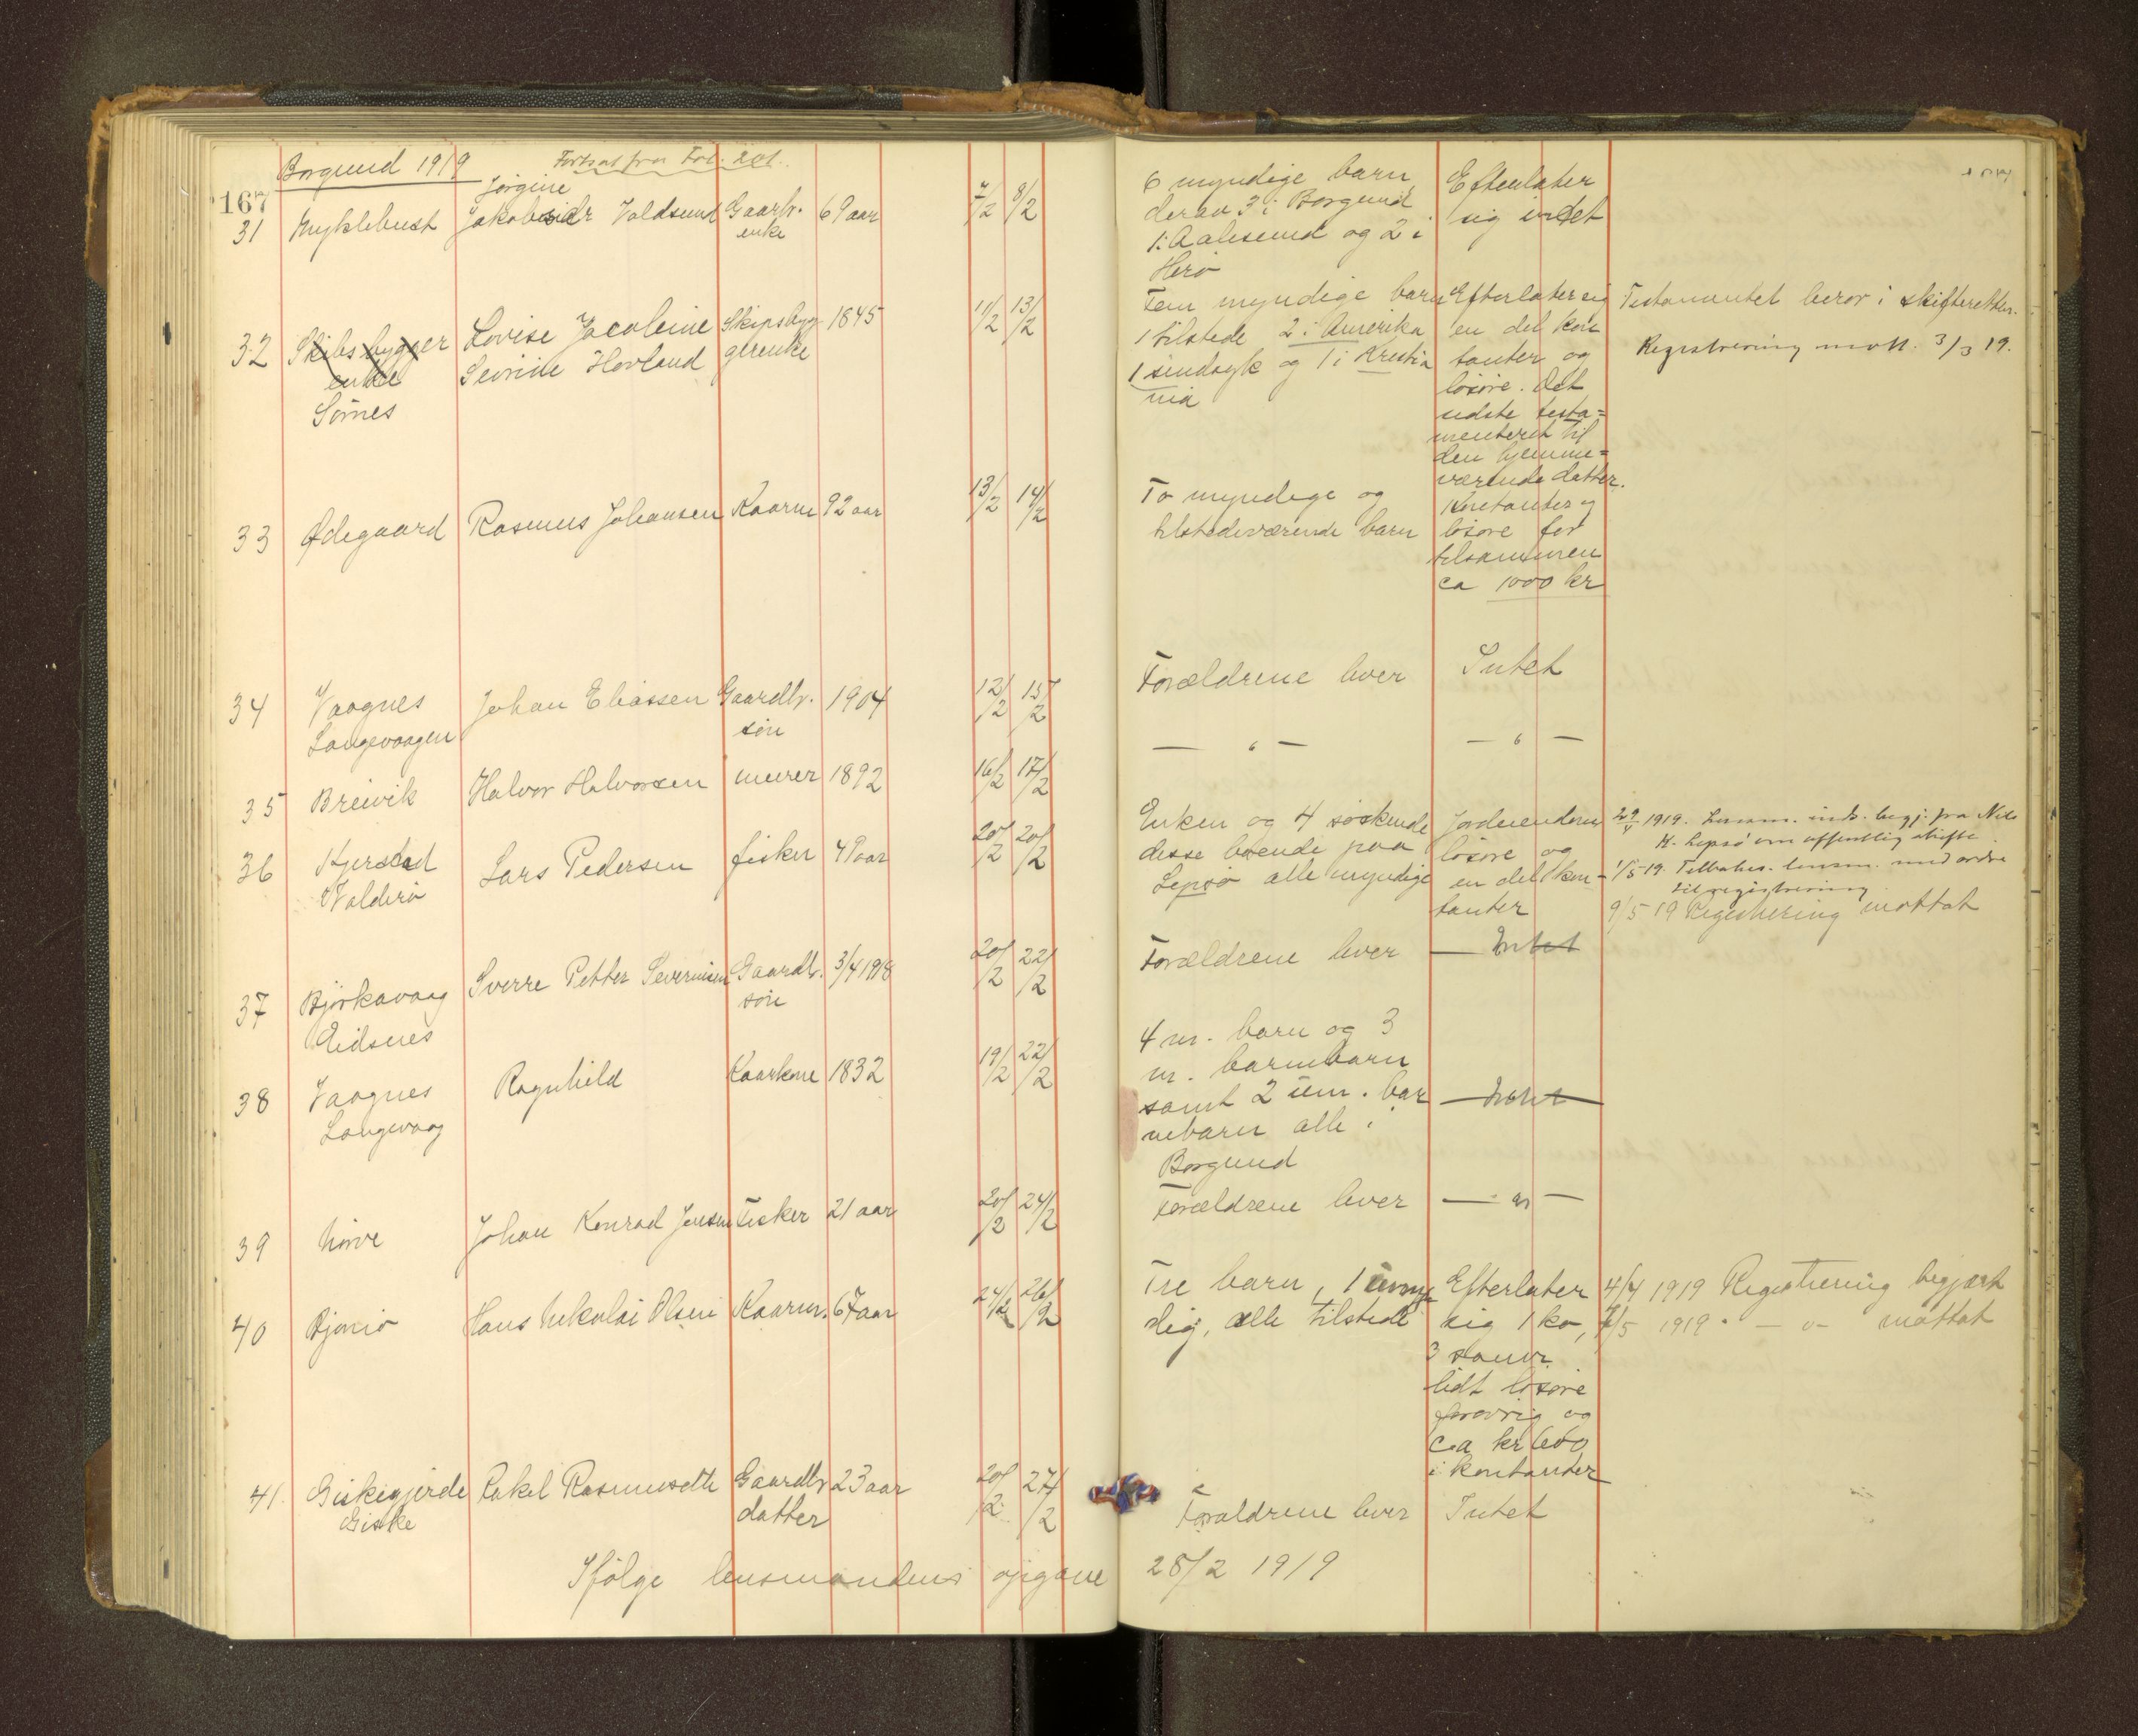 Borgund 1919
Fortsat fra Fol. 201.
167
31 Myklebust Jørgine Jakobsdr Valdsund Gaardbr. enke 69 aar 7/2 8/2
6 myndige barn
derav 3 i Borgund
1 i Aalesund og 2 i
Herø
Efterlater
sig intet
32 Skibsbygger enke Sørnes
Lovise Jacobine
Sevrine Hovland
Skipsbyg
gerenke
1845 11/2 13/2
Fem myndige barn
1 tilstede 2 i Amerika
1 og 1 i Kristia
nia
Efterlater sig
en del kon
tanter og
løsøre. Det
sidste testa=
menteret til
den hjemme=
værende datter.
Testamentet beror i skifteretten.
Registrering mott. 3/3 19.
33 Ødegaard Rasmus Johansen Kaarm 92 aar 13/2 14/2
To myndige og
tilstedeværende barn
Kontanter og
løsøre for
tilsammen
ca 1000 kr
34 Vaagnes
Langevaagen
Johan Eliassen Gaardbr.
søn
1904 12/2 15/2
Forældrene lever Intet
35 Breivik Halvor Halvorsen murer 1892 16/2 17/2
— " — — " —
36 Kjerstad
Valderø
Lars Pedersen fisker 49 aar 20/2 20/2
Enken og 4 søskende
disse boende paa
Lepsø alle myndige
Jordeiendom
løsøre og
en del kon-
tanter
29/4 1919. Lensm. inds. begj. fra Nils
K. Lepsø om offentlig skifte
1/5-19. Tilbakes. lensm. med ordre
til registrering
9/5 19 Registrering mottat
37 Bjørkavaag
Eidsnes
Sverre Petter Severinsen Gaardb.
søn
3/4 1918 20/2 22/2
Forældrene lever — Intet
38 Vaagnes
Langevaag
Ragnhild Kaarkone 1832 19/2 22/2
4 m. barn og 3
m. barnebarn
samt 2 um. bar
nebarn alle i
Borgund
— Intet —
39 Nørve Johan Konrad Jensen Fisker 21 aar 20/2 24/2
Forældrene lever — " —
40 Bjørnø Hans Nikolai Olsen Kaarm. 67 aar 24/2 26/2
Tre barn, 1 umyn
dig, alle tilstede
Efterlater
sig 1 ko,
3 sauer
lidt løsøre
forøvrig og
ca kr 600
i kontanter
4/4 1919 Registrering begjært
7/5 1919 · — " — mottat
41. Giskegjerde
Giske
Rakel Rasmusdtr Gaardbr
datter
23 aar 20/2 27/2
Forældrene lever Intet
Ifølge lensmandens opgave 28/2 1919